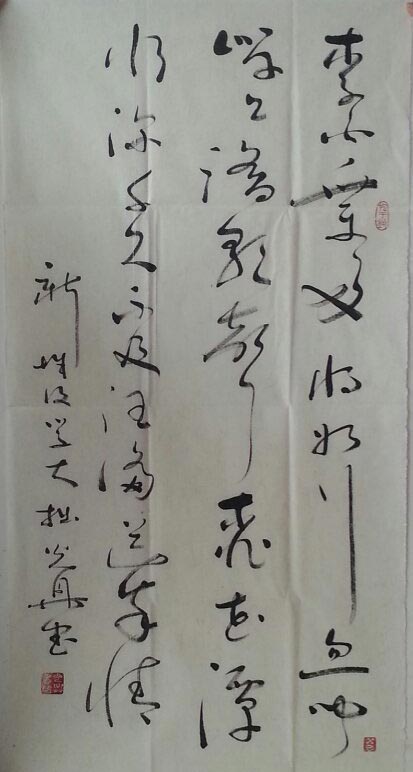 李白乘舟将欲行忽闻
岸上踏歌声桃花潭
水深千尺不及汪伦送我情
新 学大拙 书